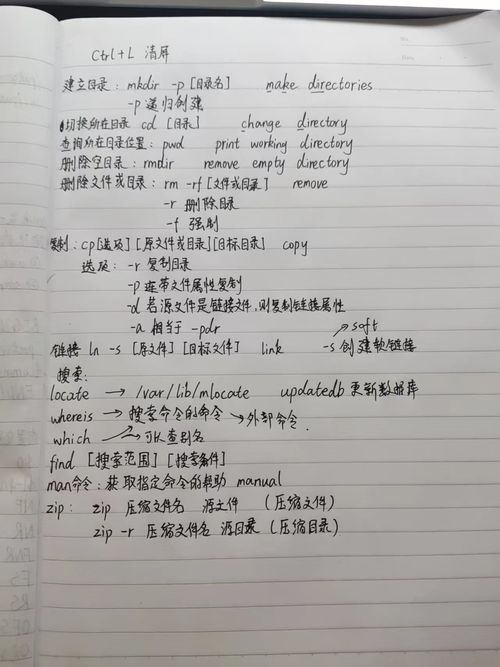 Ctrl+L 清屏
建立目录: mkdir -p [目录名] make directories
-p 递归创建
切换所在目录 cd [目录] change directory
查询所在目录位置: pwd print working directory
删除空目录: rmdir remove empty directory
删除文件或目录: rm -rf [文件或目录] remove
-r 删除目录
-f 强制
复制: cp[选项] [原文件或目录][目标目录] copy
选项: -r 复制目录
-p 连带文件属性复制
-d 若源文件是链接文件,则复制链接属性
-a 相当于 -pdr
soft
链接 ln -s [原文件] [目标文件] link -s 创建软链接
搜索:
locate → /var/lib/mlocate updatedb 更新数据库
whereis → 搜索命令的命令 → 外部命令.
which → 可以查别名
find [搜索范围] [搜索条件]
man命令: 获取指定命令的帮助 manual
zip: zip 压缩文件名 源文件 (压缩文件)
zip -r 压缩文件名 源目录 (压缩目录)